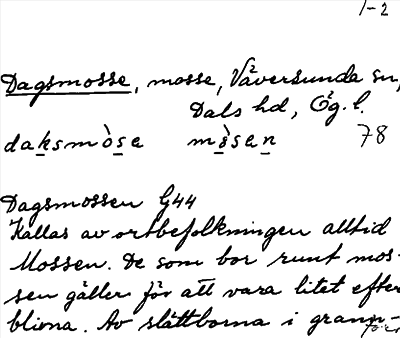 1-2
Dagsmosse, mosse, Väversunda sn,
Dals hd, Ög. l.
daksmòse mòsen 78
Dagsmossen G44
Kallas av ortbefolkningen alltid
Mossen. De som bor runt mos-
sen gäller för att vara litet efter
blivna. Av slättborna i grann-